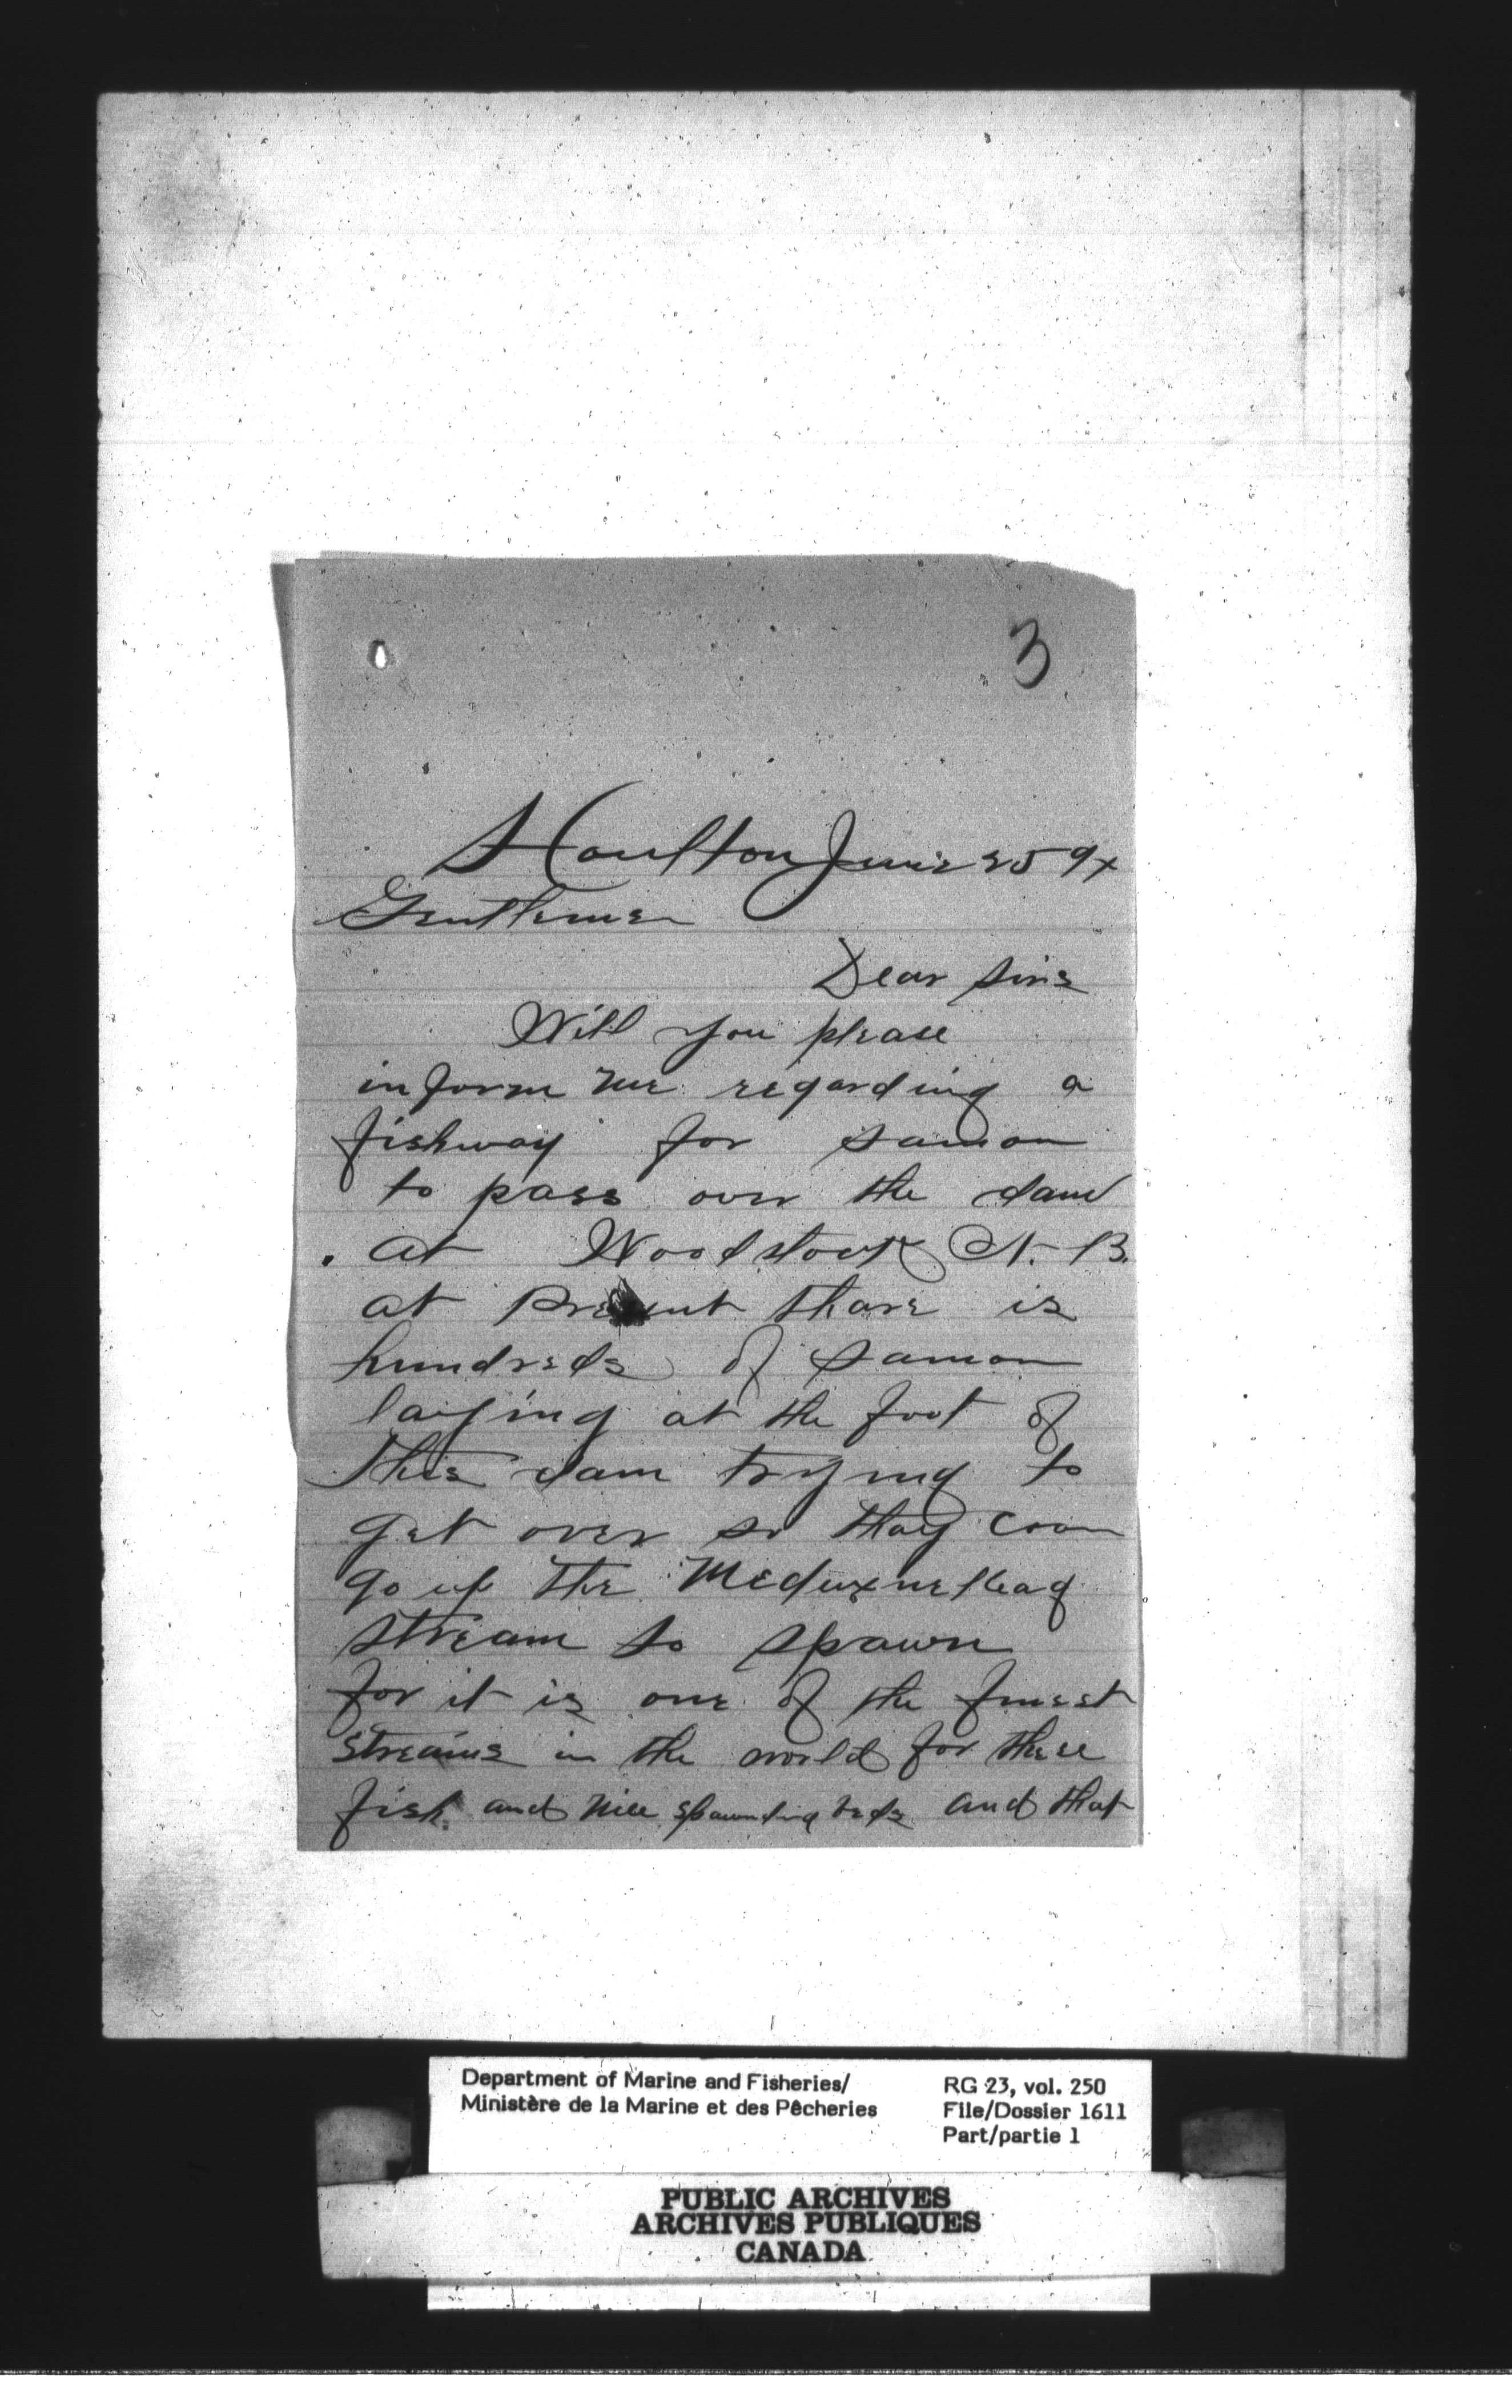 3
Houlton June 25 94
Gentlemen
Dear Sirs
Will you please
inform me regarding a
fishway for samon
to pass over the dam
at Woodstock N. B.
at Present thare is
hundreds of samon
laying at the foot of
this dam trying to
get over so thay can
go up the
stream to spawn
for it is one of the finest
streams in the world for these
fish and nice spawnding beds and that
Department of Marine and Fisheries/
Ministère de la Marine et des Pêcheries
RG 23, vol. 250
File/Dossier 1611
Part/partie 1
PUBLIC ARCHIVES
ARCHIVES PUBLIQUES
CANADA